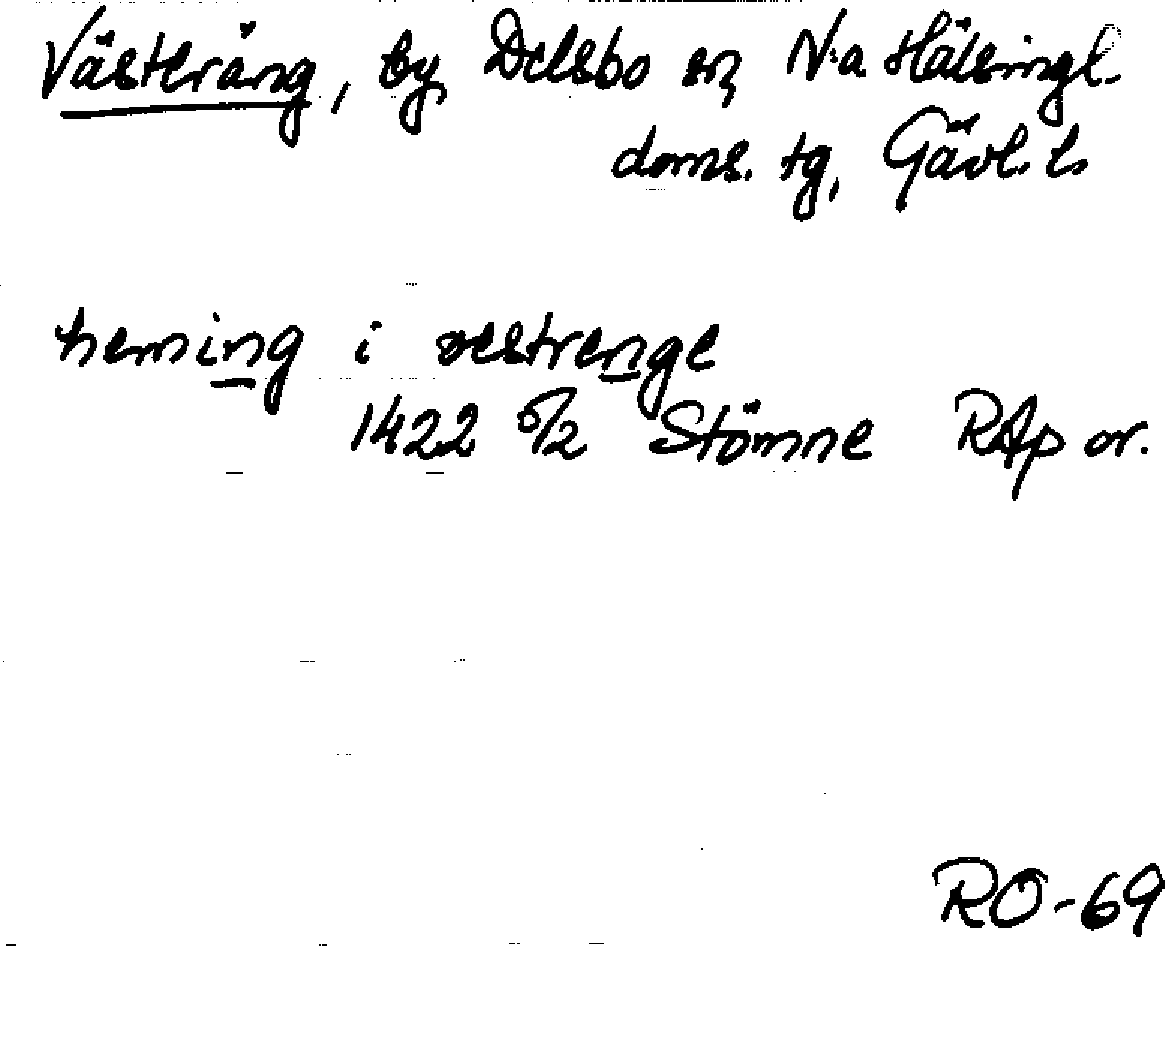 Västeräng, by, Delsbo sn, N:a Hälsingl.
doms. tg, Gävl. l.
heming i vestrenge
1422 5/2 Stömne RAp or.
RO-69